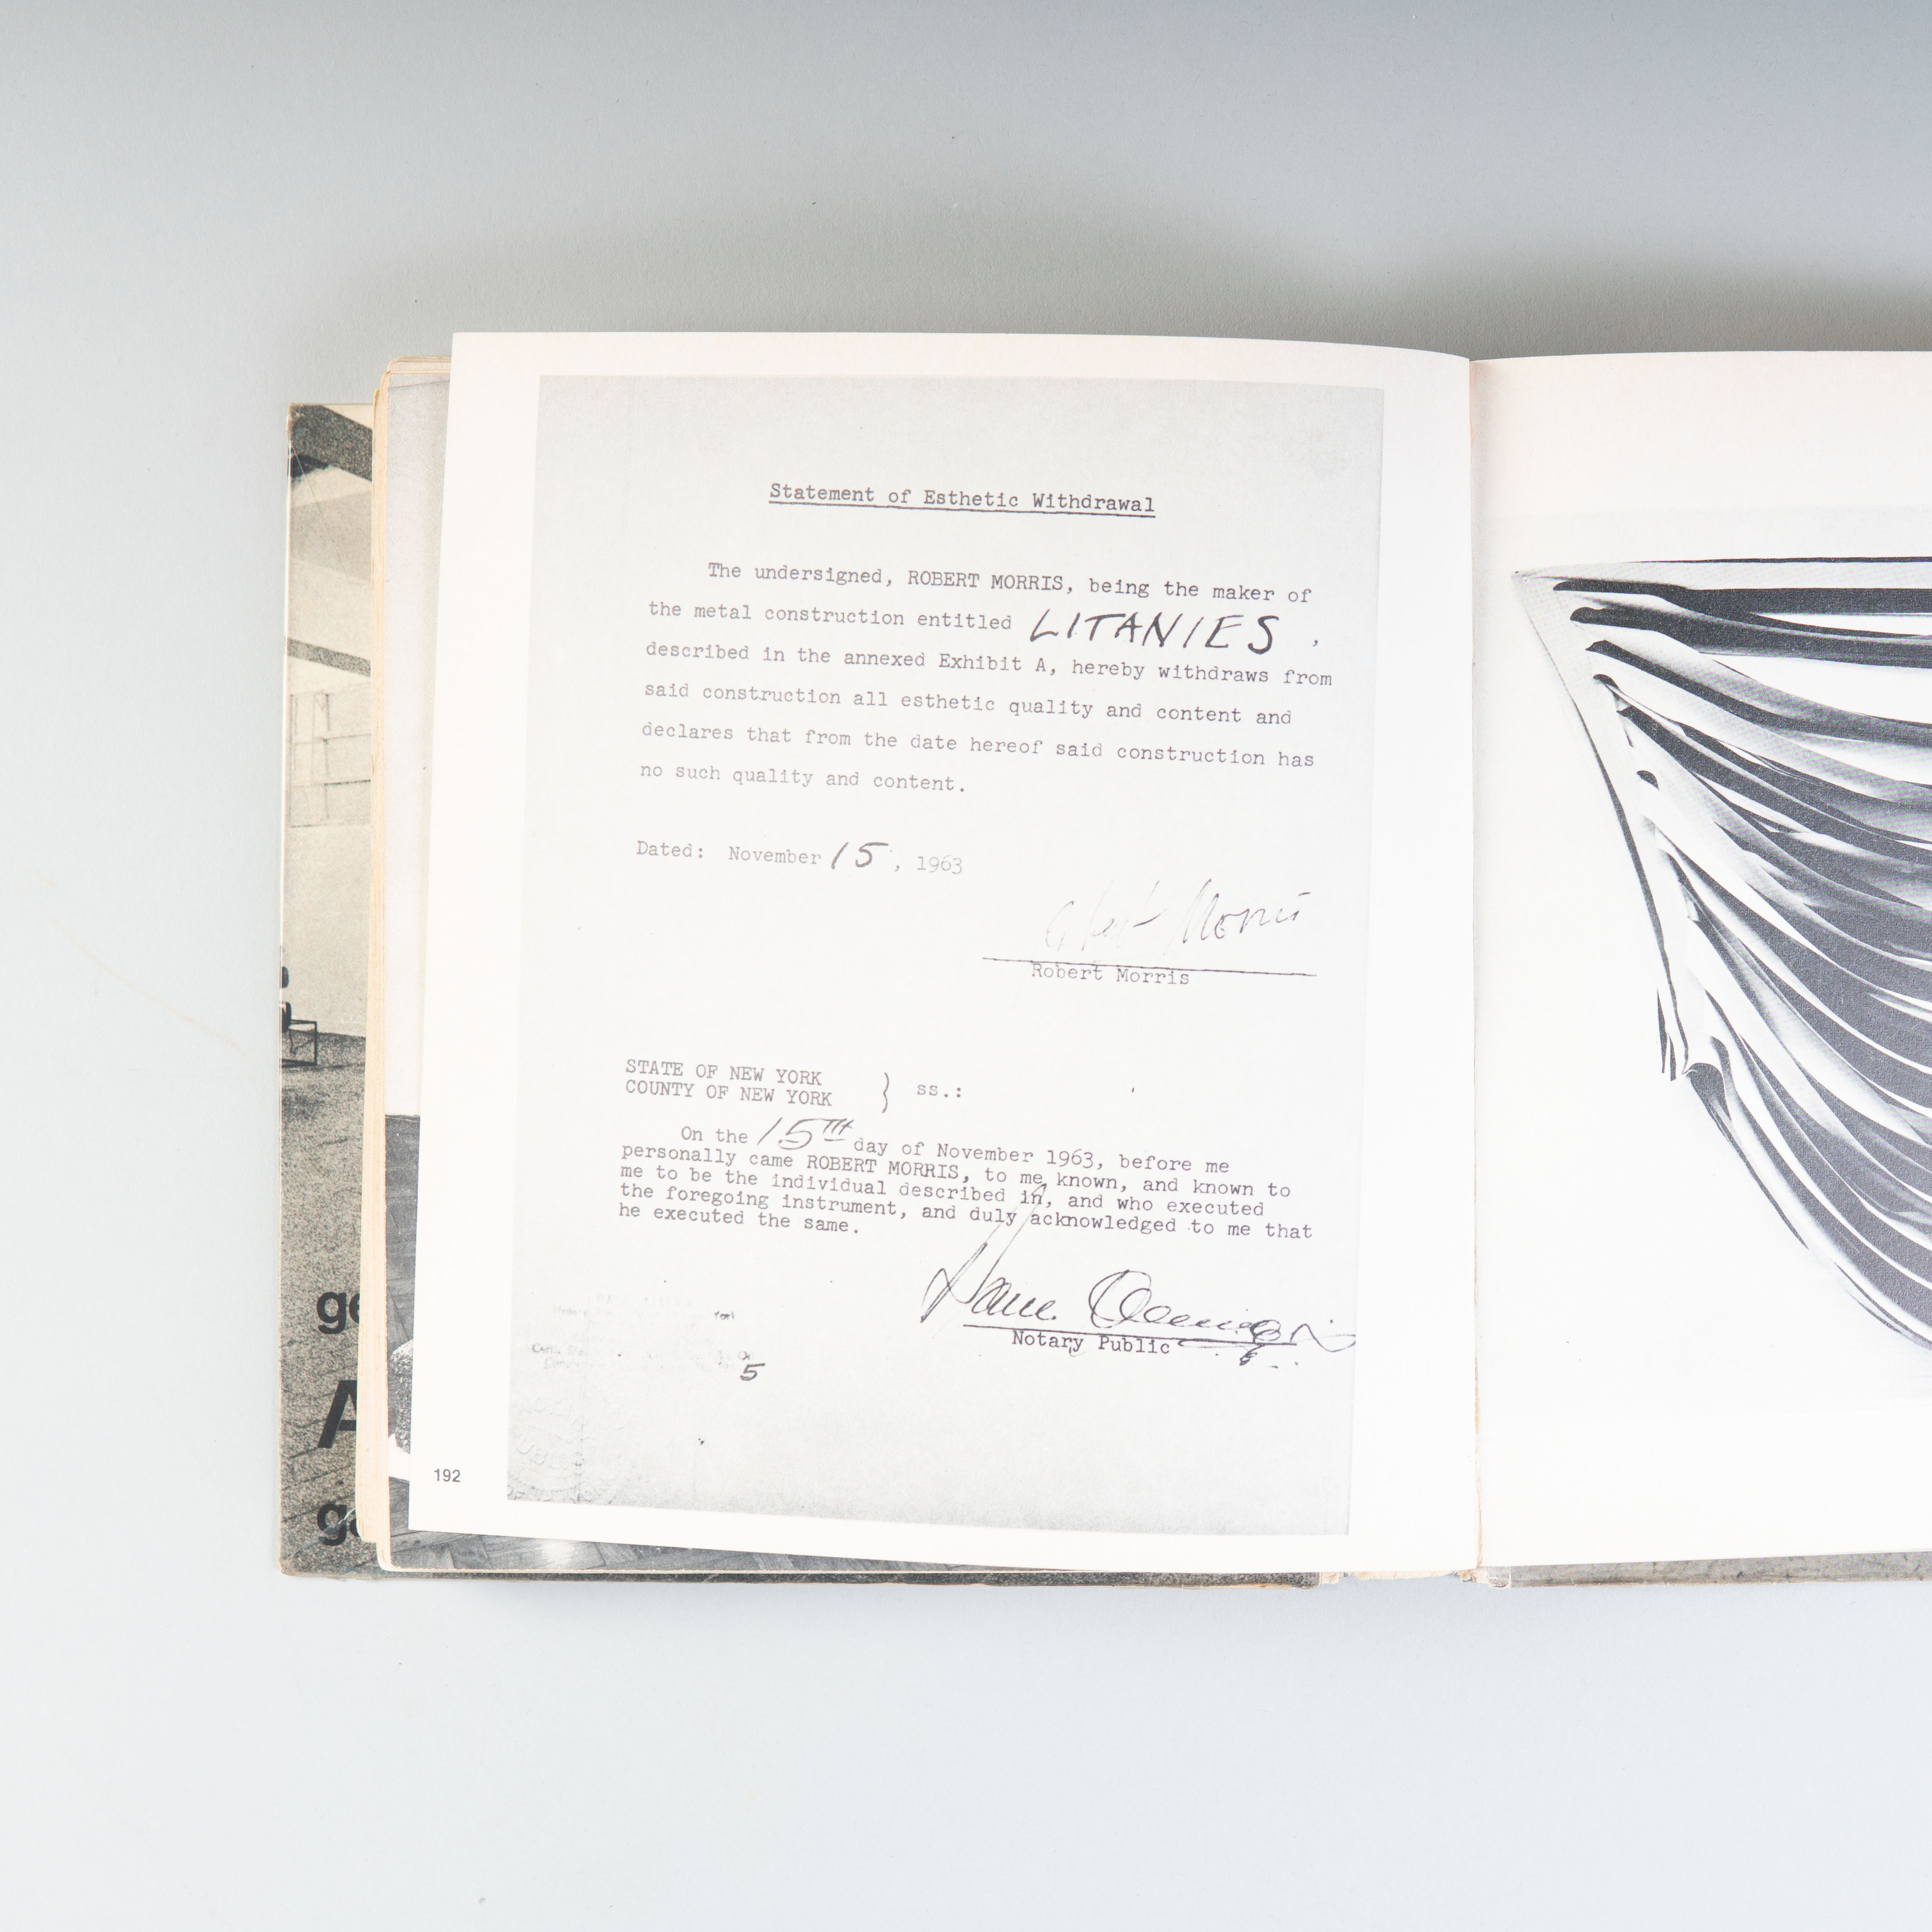 Statement of Esthetic Withdrawal
The undersigned, ROBERT MORRIS, being the maker of
the metal construction entitled LITANIES ,
described in the annexed Exhibit A, hereby withdraws from
said construction all esthetic quality and content and
declares that from the date hereof said construction has
no such quality and content.
Dated: November 15, 1963
Robert Morris
Robert Morris
STATE OF NEW YORK
COUNTY OF NEW YORK } ss.:
On the 15TH day of November 1963, before me
personally came ROBERT MORRIS, to me known, and known to
me to be the individual described in, and who executed
the foregoing instrument, and duly acknowledged to me that
he executed the same.
Notary Public
York
5
192
ge
A
ga